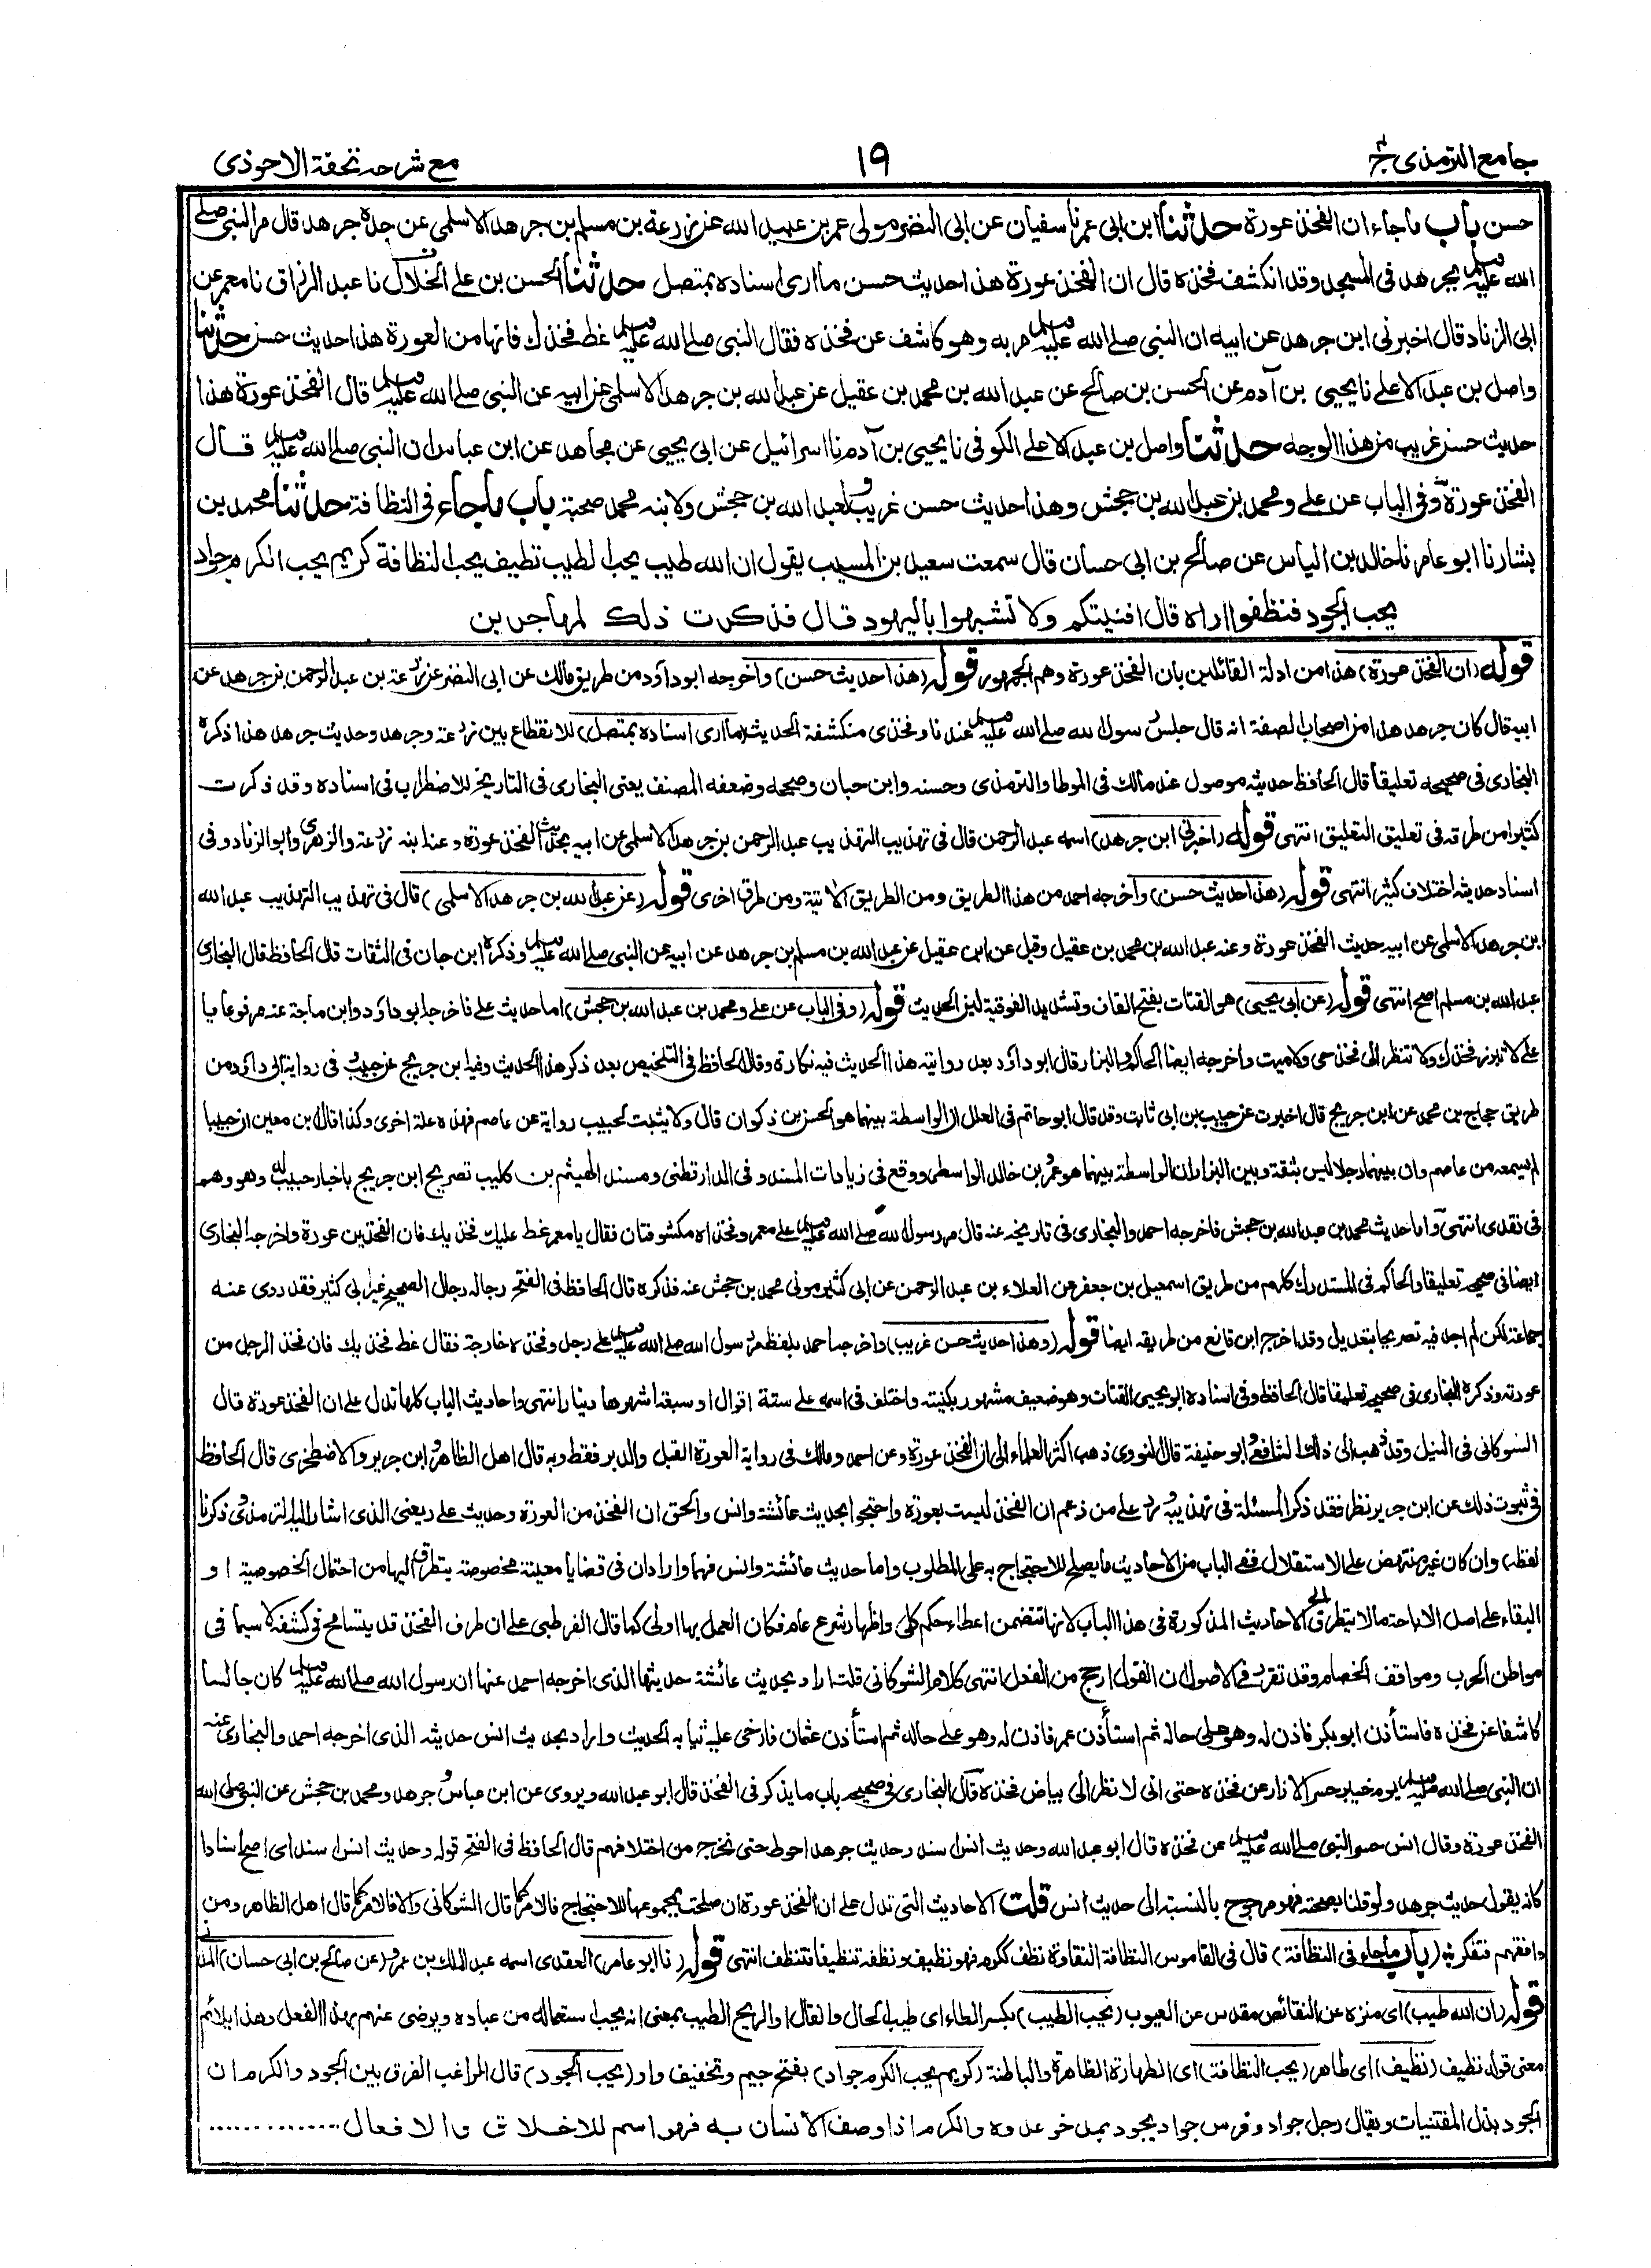 جامع الترمذي ج ٤
١٩
مع شرحه تحفة الاحوذي
حسن باب ما جاء ان الفخذ عورة حدثنا ابن ابى عمر نا سفيان عن ابى النضر مولى عمر بن عبيد الله عن زرعة بن مسلم بن جرهد الاسلمى عن جده جرهد قال مر النبى صلى
الله عليه وسلم بجرهد فى المسجد وقد انكشف فخذه قال ان الفخذ عورة هذا حديث حسن ما ارى اسناده بمتصل حدثنا الحسن بن على الخلال نا عبد الرزاق نا معمر عن
ابى الزناد قال اخبرنى ابن جرهد عن ابيه ان النبى صلى الله عليه وسلم مر به وهو كاشف عن فخذه فقال النبى صلى الله عليه وسلم غط فخذك فانها من العورة هذا حديث حسن حدثنا
واصل بن عبد الاعلى نا يحيى بن آدم عن الحسن بن صالح عن عبد الله بن محمد بن عقيل عن عبد الله بن جرهد الاسلمى عن ابيه عن النبى صلى الله عليه وسلم قال الفخذ عورة هذا
حديث حسن غريب من هذا الوجه حدثنا واصل بن عبد الاعلى الكوفى نا يحيى بن آدم نا اسرائيل عن ابى يحيى عن مجاهد عن ابن عباس ان النبى صلى الله عليه وسلم قال
الفخذ عورة وفى الباب عن على ومحمد بن عبد الله بن جحش وهذا حديث حسن غريب ولعبد الله بن جحش ولابنه محمد صحبة باب ما جاء فى النظافة حدثنا محمد بن
بشار نا ابو عامر نا خالد بن الياس عن صالح بن ابى حسان قال سمعت سعيد بن المسيب يقول ان الله طيب يحب الطيب نظيف يحب النظافة كريم يحب الكرم جواد
يحب الجود فنظفوا اراه قال افنيتكم ولا تشبهوا باليهود قال فذكرت ذلك لمهاجر بن
قوله (ان الفخذ عورة) هذا من ادلة القائلين بان الفخذ عورة وهم الجمهور قوله (هذا حديث حسن) واخرجه ابو داؤد من طريق مالك عن ابى النضر عن زرعة بن عبد الرحمن بن جرهد عن
ابيه قال كان جرهد هذا من اصحاب الصفة انه قال جلس رسول الله صلى الله عليه وسلم عندنا وفخذى منكشفة الحديث (ما ارى اسناده بمتصل) للانقطاع بين زرعة وجرهد وحديث جرهد هذا ذكره
البخارى فى صحيحه تعليقا قال الحافظ حديثه موصول عند مالك فى الموطا والترمذى وحسنه وابن حبان وصححه وضعفه المصنف يعنى البخارى فى التاريخ للاضطراب فى اسناده وقد ذكرت
كثيرا من طرقه فى تعليق التعليق انتهى قوله (اخبرنى ابن جرهد) اسمه عبد الرحمن قال فى تهذيب التهذيب عبد الرحمن بن جرهد الاسلمى عن ابيه بحديث الفخذ عورة وعنه ابنه زرعة والزهرى وابو الزناد وفى
اسناد حديثه اختلاف كثير انتهى قوله (هذا حديث حسن) واخرجه احمد من هذا الطريق ومن الطريق الاتية ومن طرق اخرى قوله (عن عبد الله بن جرهد الاسلمى) قال فى تهذيب التهذيب عبد الله
بن جرهد الاسلمى عن ابيه حديث الفخذ عورة وعنه عبد الله بن محمد بن عقيل وقيل عن ابن عقيل عن عبد الله بن مسلم بن جرهد عن ابيه عن النبى صلى الله عليه وسلم وذكره ابن حبان فى الثقات قال الحافظ قال البخارى
عبد الله بن مسلم اصح انتهى قوله (عن ابى يحيى) هو القتات بفتح القاف وتشديد الفوقية لين الحديث قوله (وفى الباب عن على ومحمد بن عبد الله بن جحش) اما حديث على فاخرجه ابو داؤد وابن ماجة عنه مرفوعا يا
على لا تبرز فخذك ولا تنظر الى فخذ حى ولا ميت واخرجه ايضا الحاكم والبزار قال ابو داؤد بعد روايته هذا الحديث فيه نكارة وقال الحافظ فى التلخيص بعد ذكر هذا الحديث وفيه ابن جريج عن حبيب وفى رواية ابى داؤد من
طريق حجاج بن محمد عن ابن جريج قال اخبرت عن حبيب بن ابى ثابت وقد قال ابو حاتم فى العلل ان الواسطة بينهما هو الحسن بن ذكوان قال ولا يثبت لحبيب رواية عن عاصم فهذه علة اخرى وكذا قال ابن معين ان حبيبا
لم يسمعه من عاصم وان بينهما رجلا ليس بثقة وبين البزار ان الواسطة بينهما هو عمر بن خالد الواسطى ووقع فى زيادات المسند وفى الدارقطنى ومسند الهيثم بن كليب تصريح ابن جريج باخبار حبيب له وهو وهم
فى نقدى انتهى واما حديث محمد بن عبد الله بن جحش فاخرجه احمد والبخارى فى تاريخه عنه قال مر رسول الله صلى الله عليه وسلم على معمر وفخذاه مكشوفتان فقال يا معمر غط عليك فخذيك فان الفخذين عورة واخرجه البخارى
ايضا فى صحيحه تعليقا والحاكم فى المستدرك كلهم من طريق اسمعيل بن جعفر عن العلاء بن عبد الرحمن عن ابى كثير مولى محمد بن جحش عنه فذكره قال الحافظ فى الفتح رجاله رجال الصحيح غير ابى كثير فقد روى عنه
جماعة لكن لم اجد فيه تصريحا بتعديل وقد اخرج ابن قانع من طريقه ايضا قوله (وهذا حديث حسن غريب) واخرجه احمد بلفظ مر رسول الله صلى الله عليه وسلم على رجل وفخذه خارجة فقال غط فخذيك فان فخذ الرجل من
عورته وذكره البخارى فى صحيحه تعليقا قال الحافظ وفى اسناده ابو يحيى القتات وهو ضعيف مشهور بكنيته واختلف فى اسمه على ستة اقوال او سبعة اشهرها دينار انتهى واحاديث الباب كلها تدل على ان الفخذ عورة قال
الشوكانى فى النيل وقد ذهب الى ذلك الشافعى وابو حنيفة قال النووى ذهب اكثر العلماء الى ان الفخذ عورة وعن احمد ومالك فى رواية العورة القبل والدبر فقط وبه قال اهل الظاهر وابن جرير والاصطخرى قال الحافظ
فى ثبوت ذلك عن ابن جرير نظر فقد ذكر المسئلة فى تهذيبه ورد على من زعم ان الفخذ ليست بعورة واحتجوا بحديث عائشة وانس والحق ان الفخذ من العورة وحديث على (يعنى الذى اشار اليه الترمذى وذكرنا
لفظه) وان كان غير منتهض على الاستقلال ففى الباب من الاحاديث ما يصلح للاحتجاج به على المطلوب واما حديث عائشة وانس فهما واردان فى قضايا معينة مخصوصة يتطرق اليها من احتمال الخصوصية او
البقاء على اصل الاباحة ما لا يتطرق الى الاحاديث المذكورة فى هذا الباب لانها تتضمن اعطاء حكم كلى واظهار شرع عام فكان العمل بها اولى كما قال القرطبى على ان طرف الفخذ قد يتسامح فى كشفه لا سيما فى
مواطن الحرب ومواقف الخصام وقد تقرر فى الاصول ان القول ارجح من الفعل انتهى كلام الشوكانى قلت اراد بحديث عائشة حديثها الذى اخرجه احمد عنها ان رسول الله صلى الله عليه وسلم كان جالسا
كاشفا عن فخذه فاستأذن ابو بكر فاذن له وهو على حاله ثم استأذن عمر فاذن له وهو على حاله ثم استأذن عثمان فارخى عليه ثيابه الحديث واراد بحديث انس حديثه الذى اخرجه احمد والبخارى عنه
ان النبى صلى الله عليه وسلم يوم خيبر حسر الازار عن فخذه حتى انى لا نظر الى بياض فخذه قال البخارى فى صحيحه باب ما يذكر فى الفخذ قال ابو عبد الله ويروى عن ابن عباس وجرهد ومحمد بن جحش عن النبى صلى الله
الفخذ عورة وقال انس حسر النبى صلى الله عليه وسلم عن فخذه قال ابو عبد الله وحديث انس اسند وحديث جرهد احوط حتى نخرج من اختلافهم قال الحافظ فى الفتح قوله وحديث انس اسند اى اصح اسنادا
كانه يقول حديث جرهد ولو قلنا بصحته فهو مرجوح بالنسبة الى حديث انس قلت الاحاديث التى تدل على ان الفخذ عورة ان صلحت بمجموعها للاحتجاج فالامر كما قال الشوكانى والا فالامر كما قال اهل الظاهر ومن
وافقهم فتفكر فيه (باب ما جاء فى النظافة) قال فى القاموس النظافة النقاوة نظف ككرم فهو نظيف ونظفه تنظيفا فتنظف انتهى قوله (نا ابو عامر) العقدى اسمه عبد الملك بن عمرو (عن صالح بن ابى حسان) المدنى
قوله (ان الله طيب) اى منزه عن النقائص مقدس عن العيوب (يحب الطيب) بكسر الطاء اى طيب الحال والقال او الريح الطيب بمعنى انه يحب استعماله من عباده ويرضى عنهم بهذا الفعل وهذا يلائم
معنى قوله نظيف (نظيف) اى طاهر (يحب النظافة) اى الطهارة الظاهرة والباطنة (كريم يحب الكرم جواد) بفتح جيم وتخفيف واو (يحب الجود) قال الراغب الفرق بين الجود والكرم ان
الجود بذل المقتنيات ويقال رجل جواد وفرس جواد يجود بمدخر عدوه والكرم اذا وصف الانسان به فهو اسم للاخلاق والافعال ............